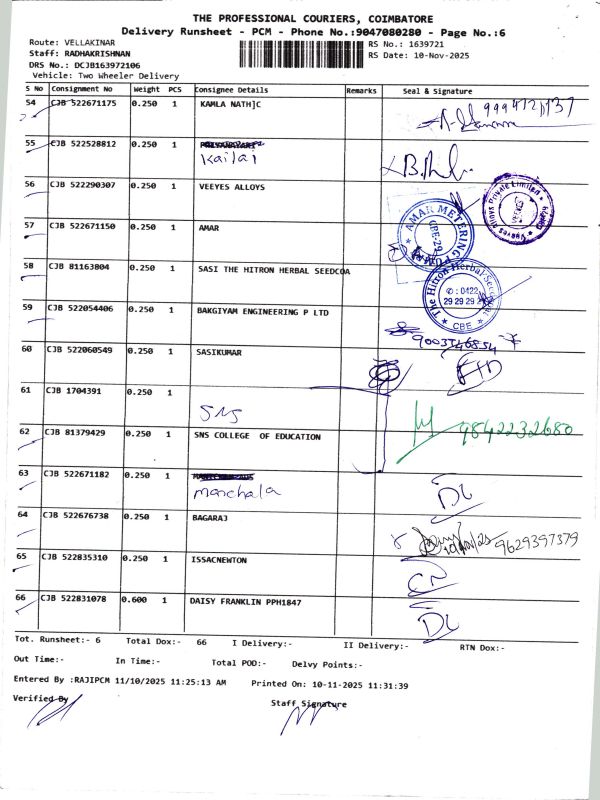 THE PROFESSIONAL COURIERS, COIMBATORE
Delivery Runsheet - PCM - Phone No.:9047080280 - Page No.:6
Route: VELLAKINAR
RS No.: 1639721
Staff: RADHAKRISHNAN
RS Date: 10-Nov-2025
DRS No.: DCJB163972106
Vehicle: Two Wheeler Delivery
S No Consignment No Weight PCS Consignee Details Remarks Seal & Signature
54 CJB 522671175 0.250 1 KAMLA NATH]C
55 CJB 522528812 0.250 1
Kailai
56 CJB 522290307 0.250 1 VEEYES ALLOYS
Veeyes Alloys Private Limited
57 CJB 522671150 0.250 1 AMAR
AMAR METERING PUMPS
CBE-29
58 CJB 81163804 0.250 1 SASI THE HITRON HERBAL SEEDCOA
The Hitron Herbal
: 0422
29 29 29
CBE
59 CJB 522054406 0.250 1 BAKGIYAM ENGINEERING P LTD
60 CJB 522060549 0.250 1 SASIKUMAR
61 CJB 1704391 0.250 1
SNS
62 CJB 81379429 0.250 1 SNS COLLEGE OF EDUCATION
9842232680
63 CJB 522671182 0.250 1
manchala
DL
64 CJB 522676738 0.250 1 BAGARAJ
9629397379
65 CJB 522835310 0.250 1 ISSACNEWTON
66 CJB 522831078 0.600 1 DAISY FRANKLIN PPH1847
DL
Tot. Runsheet:- 6 Total Dox:- 66 I Delivery:- II Delivery:- RTN Dox:-
Out Time:- In Time:- Total POD:- Delvy Points:-
Entered By :RAJIPCM 11/10/2025 11:25:13 AM Printed On: 10-11-2025 11:31:39
Verified By
Staff Signature